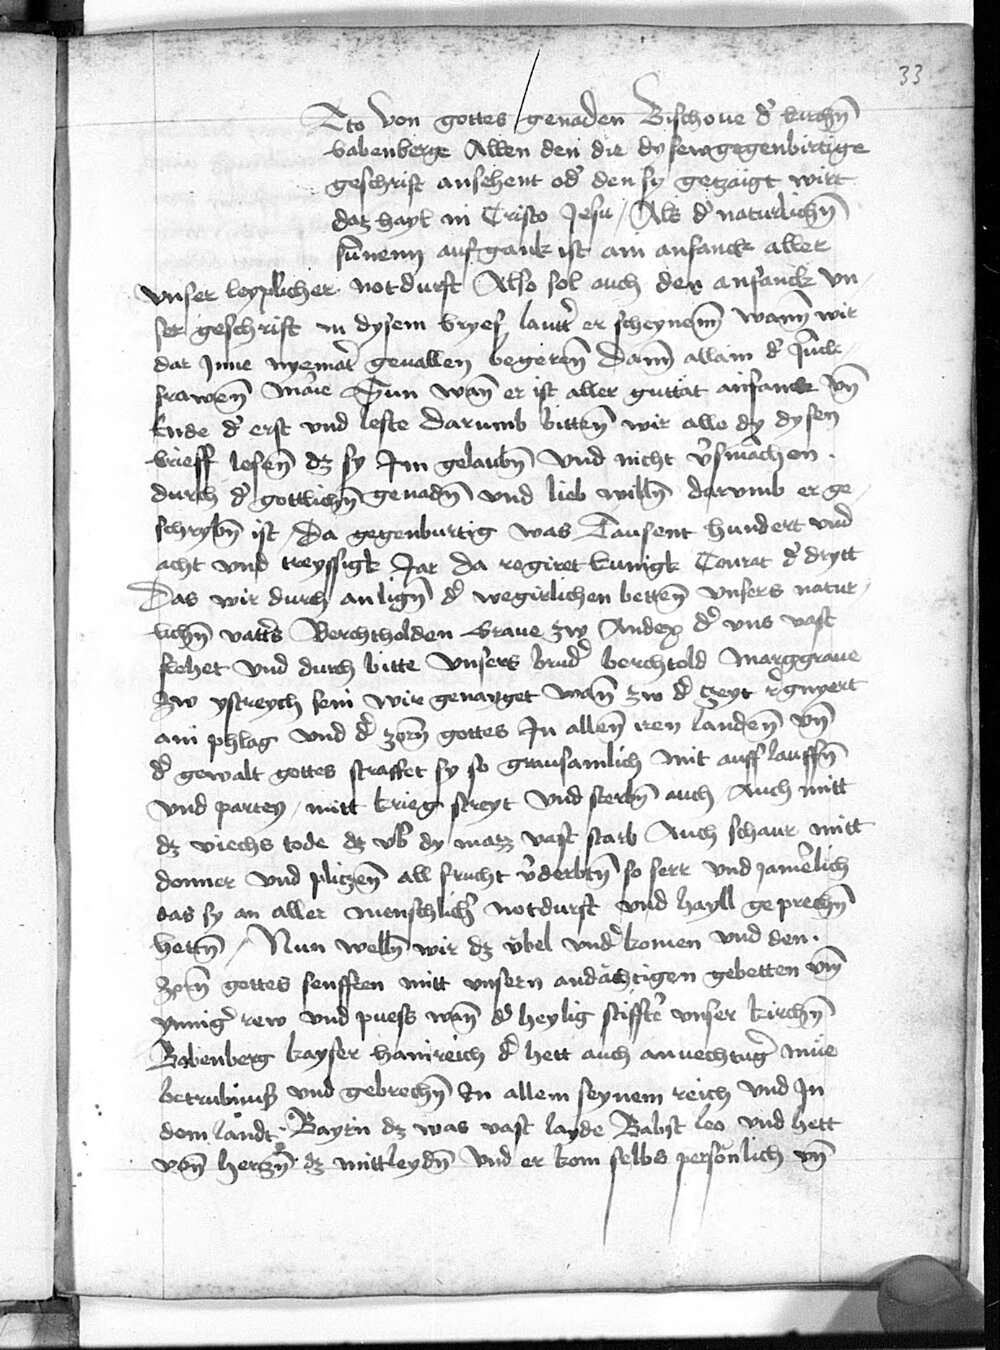 33
Tto von gottes genaden Bischoue d' kirchn̄
babenberge Allen den die dysew gegenbirtige
geschrift ansehent od' den sy getzaigt wirt
daz hayl in Cristo Jesu / Als d' naturlichn̄
sūnenn aufgank ist am anfanck aller
vnser leyplicher notdurft Also sol auch der anfanck vn
ser geschrift in dysem bryef laut' er scheynenn wann wir
dar Inne nyemat geuallen begeren̄ Dann allain d' Junck
frawen̄ Marie Sun wan̄ er ist aller guttat anfanck vn̄
Ende d' erst vnd leste Darumb bitten̄ wir alle dy dysen
brieff lesen̄ dz sy Im gelaubn̄ vnd nicht v'smachen .
durch d' gottlichn̄ genadn̄ vnd lieb willn̄ darumb er ge
schrybn̄ ist / Da gegenburtig was Tausent hundert vnd
acht vnd treyssigk Jar da regiret kunigk Conrat d' drytt
Das wir durch anlign̄ d' wegirlichen betten̄ vnsers natur
lichn̄ vatt's Berchtholden Graue zw Andex d' vns vast
flehet vnd durch bitte vnsers brud' berchtold Marggraue
zw ystreych sein wir genayget wan̄ zw d' tzeyt r'gnyert
ain phlag vnd d' zorn̄ gottes In allen̄ iren landen̄ vn̄
d' gewalt gottes straffet sy so grausamlich mit aufflauffn̄
vnd partey / mitt krieg streyt vnd sterbn̄ auch Auch mitt
dz viechs tode dz vb' dy masz vast starb Auch schaur mitt
donner vnd pliczen̄ all frucht v'derbtn̄ so serr vnd jamerlich
das sy an aller menschlich' notdurft vnd hayll geprechn̄
hettn̄ / Nun welln̄ wir dz vbel vnd'komen vnd den .
zorn̄ gottes senfften mitt vnsern andächtigen gebetten vnn̄
ynnig' rew vnd puess wan̄ d' heylig stifft' vnser kirchn̄
Babenberg kayser hainreich d' hett auch anuechtug' müe
betrubnuß vnd gebrechn̄ In allem seynem reich vnd In
dem landt Bayrn dz was vast layde Babst leo vnd hett
von̄ hertzn̄ dz mittleydn̄ vnd er kom selbs persönlich vn̄